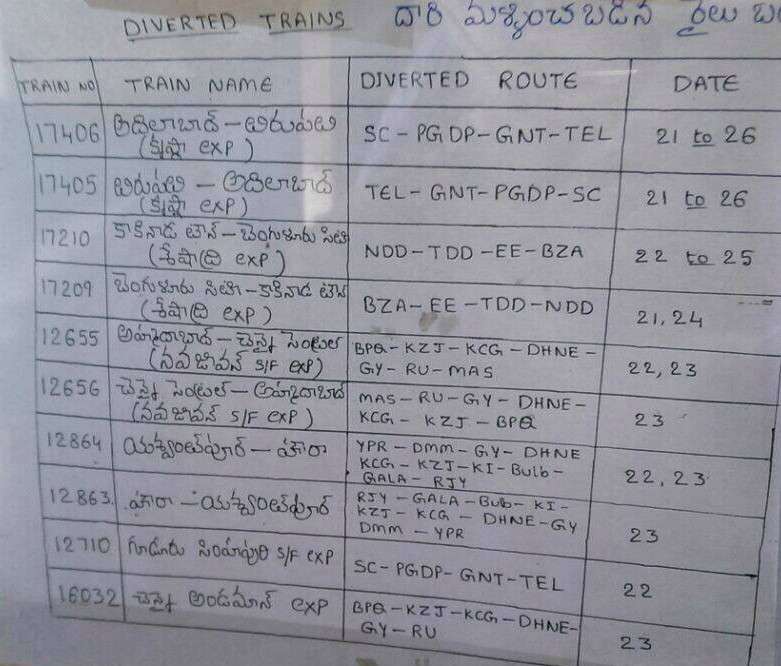 DIVERTED TRAINS దారి మళ్ళించబడిన రైలు
TRAIN NO TRAIN NAME DIVERTED ROUTE DATE
17406 అదిలాబాద్ - తిరుపతి SC - PGDP - GNT - TEL 21 to 26
(కృష్ణా exp)
17405 తిరుపతి - అదిలాబాద్ TEL - GNT - PGDP - SC 21 to 26
(కృష్ణా exp)
17210 కాకినాడ టౌన్ - బెంగుళూరు సిటి NDD - TDD - EE - BZA 22 to 25
(శేషాద్రి exp)
17209 బెంగుళూరు సిటి - కాకినాడ టౌన్ BZA - EE - TDD - NDD 21, 24
(శేషాద్రి exp)
12655 అహ్మదాబాద్ - చెన్నై సెంట్రల్ BPQ - KZJ - KCG - DHNE - 22, 23
(నవజీవన్ S/F exp) GY - RU - MAS
12656 చెన్నై సెంట్రల్ - అహ్మదాబాద్ MAS - RU - GY - DHNE - 23
(నవజీవన్ S/F exp) KCG - KZJ - BPQ
12864 యశ్వంత్‌పూర్ - హౌరా YPR - DMM - GY - DHNE 22, 23
KCG - KZJ - KI - Bulb -
GALA - RJY
12863. హౌరా - యశ్వంత్‌పూర్ RJY - GALA - Bulb - KI - 23
KZJ - KCG - DHNE - GY
DMM - YPR
12710 గూడూరు సింహపురి S/F exp SC - PGDP - GNT - TEL 22
16032 చెన్నై అండమాన్ exp BPQ - KZJ - KCG - DHNE - 23
GY - RU